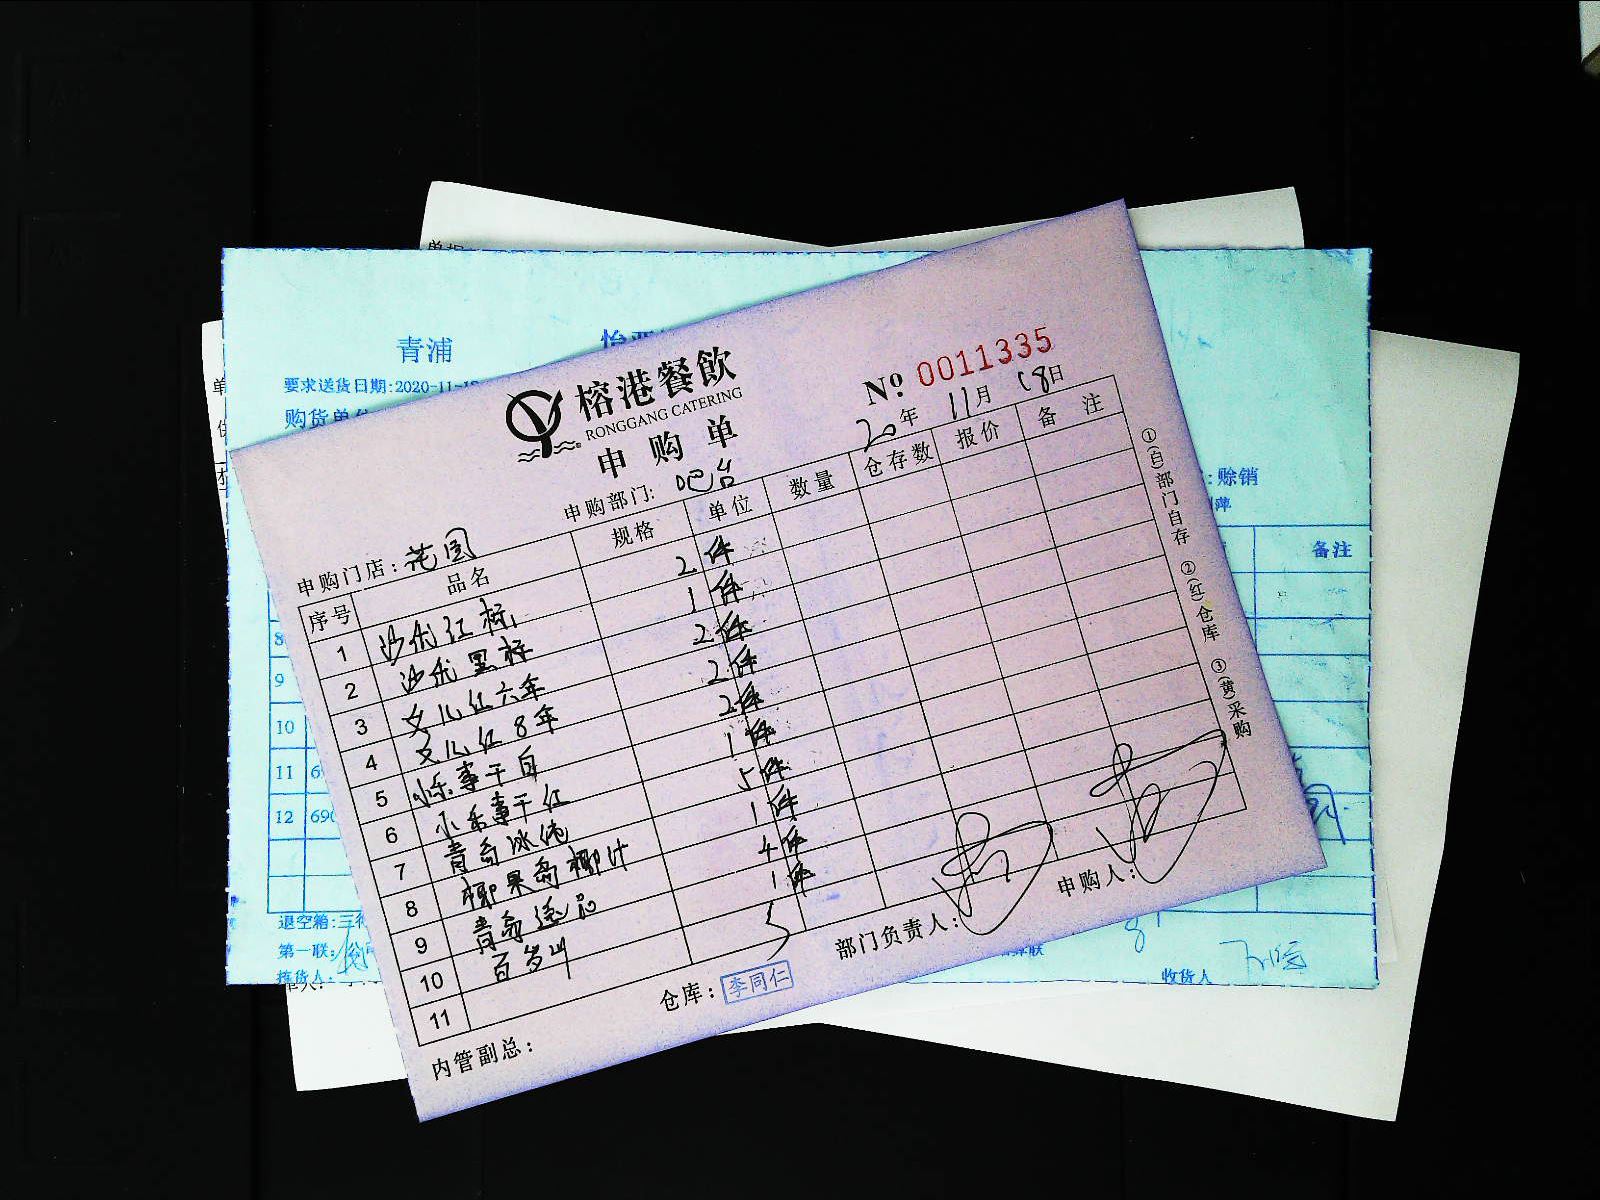 单据
青浦
要求送货日期:2020-11-1
购货单位
榕港餐飲
RONGGANG CATERING
申购单
№ 0011335
20年 11月 18日
申购门店:花园
申购部门:吧台
序号 品名 规格 单位 数量 仓存数 报价 备注
1 沙优红标 2件
2 沙优黑标 1件
3 女儿红六年 2件
4 女儿红8年 2件
5 小乐事干白 2件
6 小乐事干红 1件
7 青岛冰纯 5件
8 椰果岛椰汁 1件
9 青岛逸品 4件
10 百岁山 1件
11
仓库:李同仁
部门负责人:
申购人:
内管副总:
①(白)部门自存 ②(红)仓库 ③(黄)采购
:赊销
萍
备注
8
9
10
11 6
12 690
退空箱:三得
第一联:
拣货人:
收货人